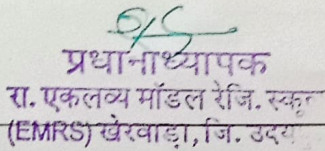 प्रधानाध्यापक
रा. एकलव्य मॉडल रेजि. स्कू
(EMRS) खेरवाड़ा, जि. उदय